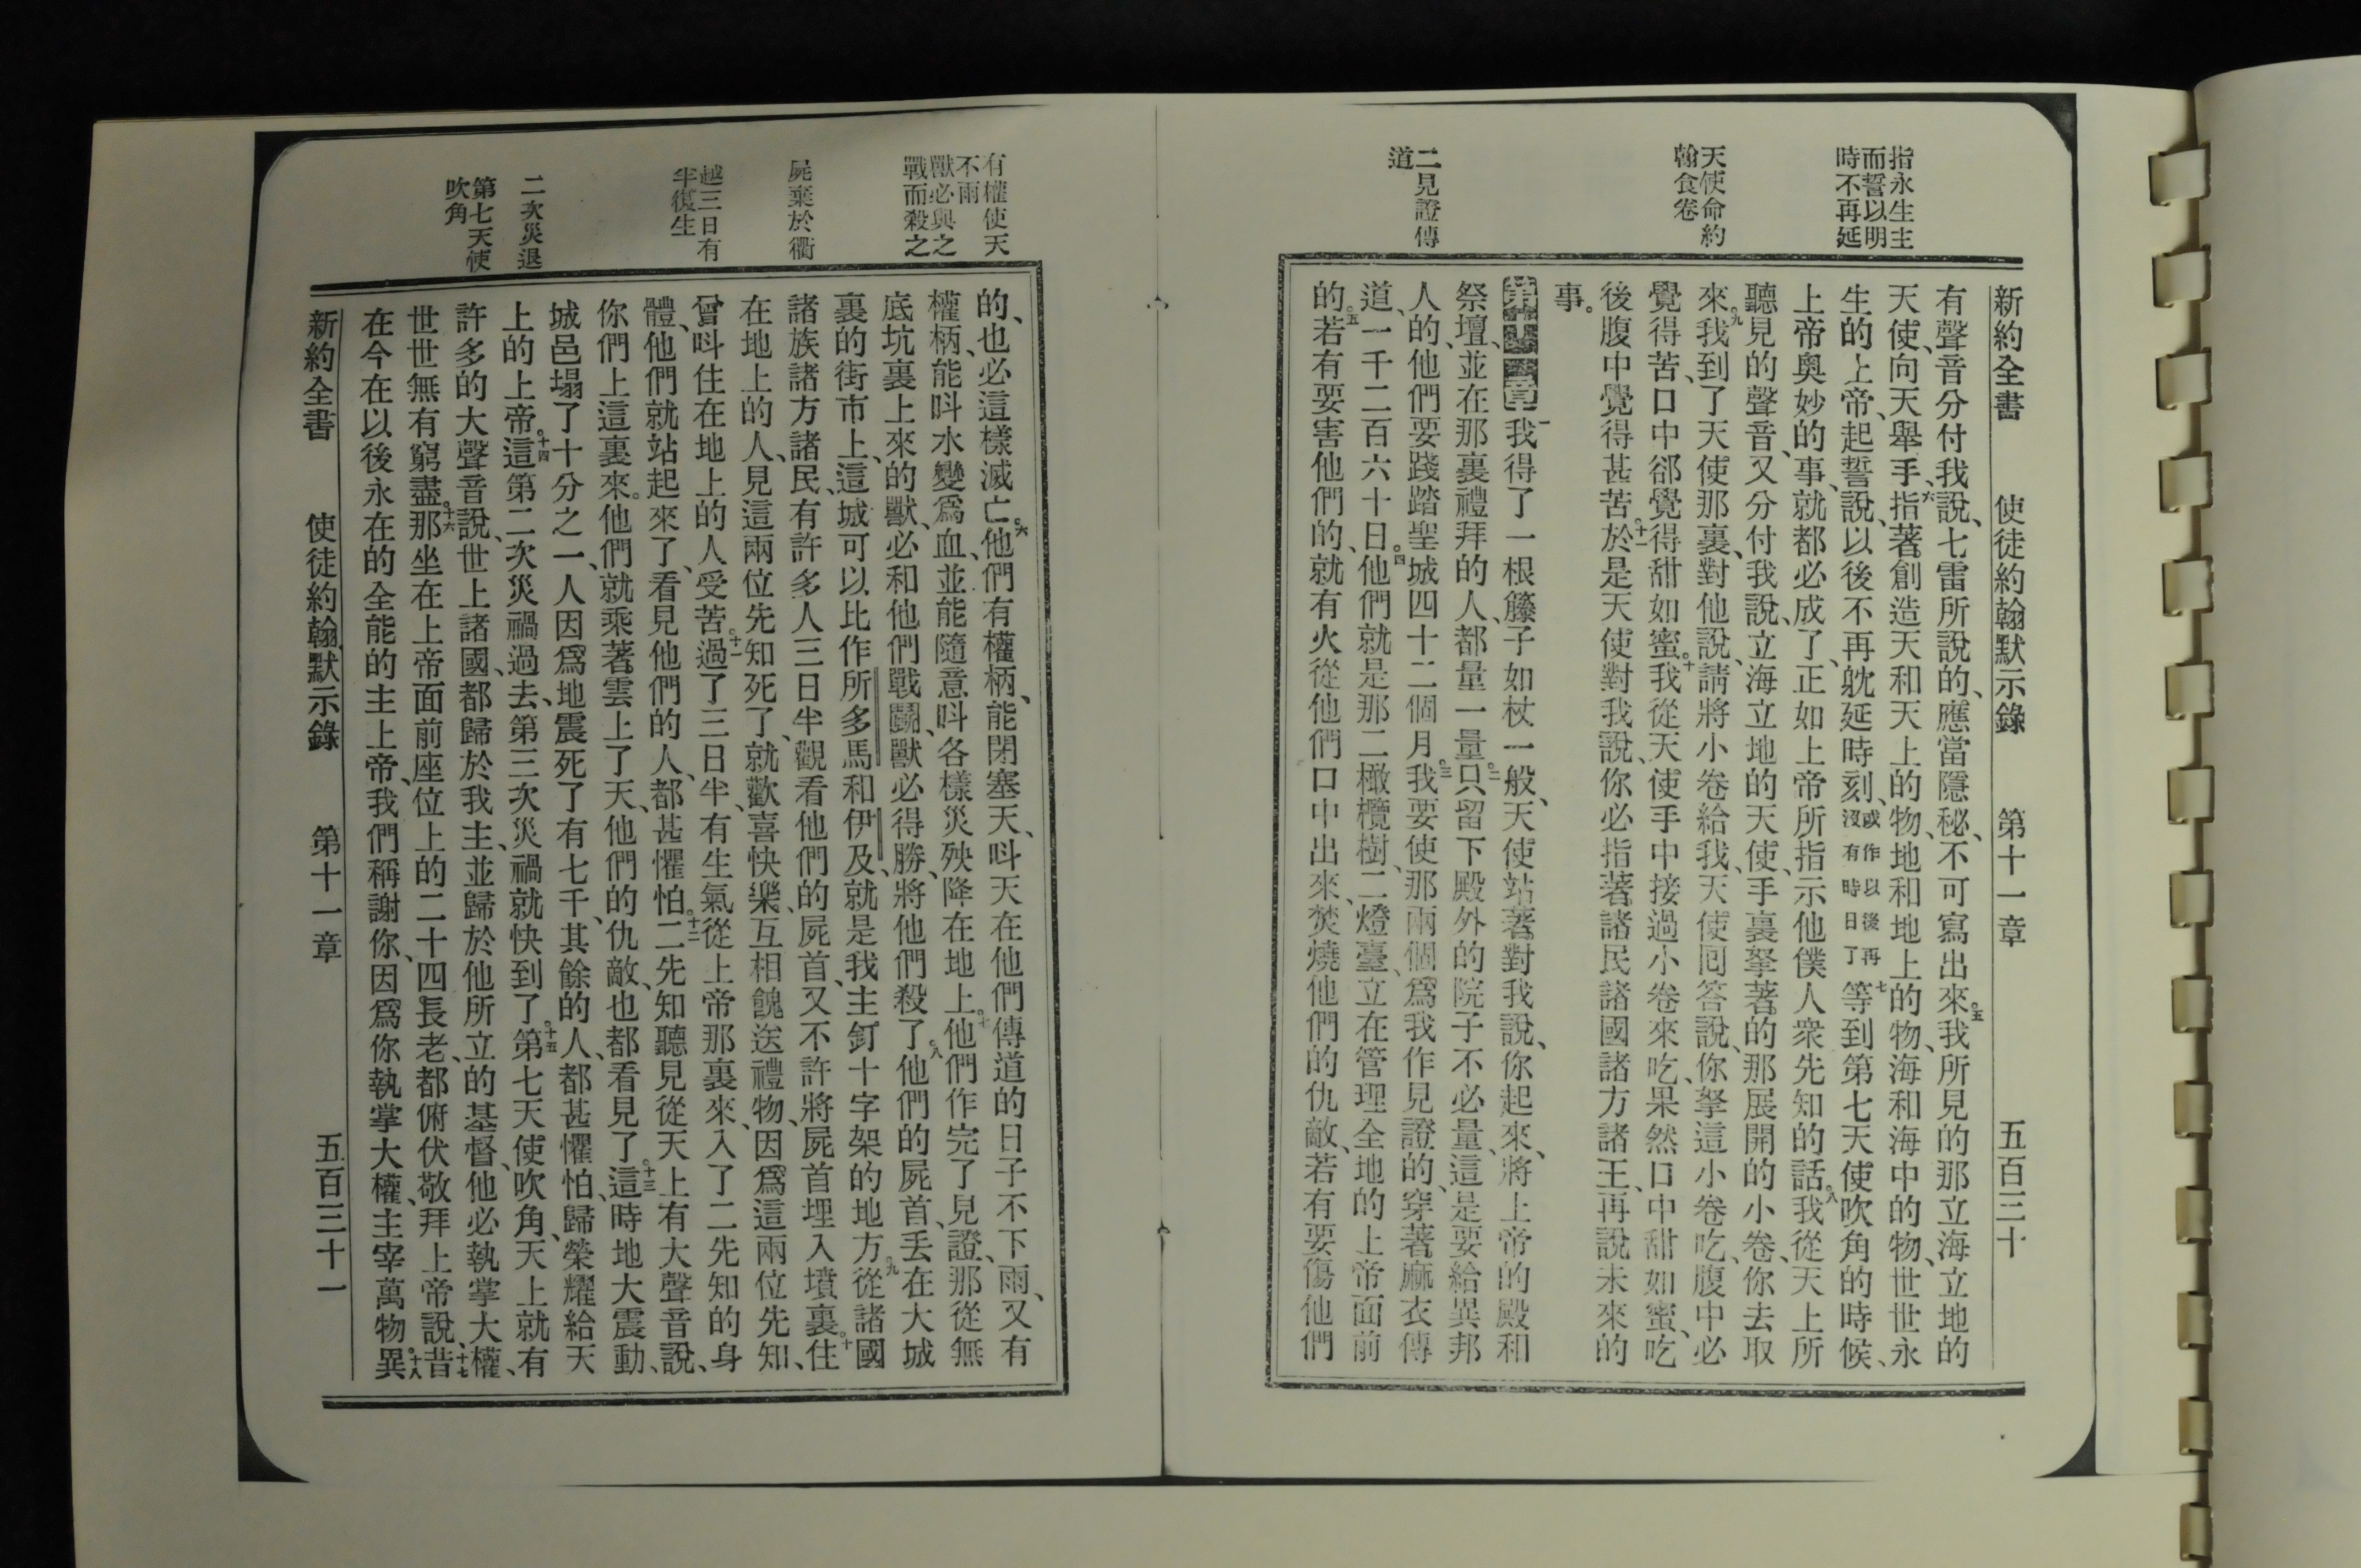 新約全書 使徒約翰默示錄 第十一章 五百三十
指永生主
而誓以明
時不再延
天使命約
翰食卷
二見證傳
道
有聲音分付我說、七雷所說的、應當隱秘、不可寫出來。五我所見的那立海立地的
天使、向天舉手、六指著創造天和天上的物、地和地上的物、海和海中的物、世世永
生的上帝、起誓說、以後不再躭延時刻、或作以後再沒有時日了七等到第七天使吹角的時候、
上帝奧妙的事、就都必成了、正如上帝所指示他僕人衆先知的話。八我從天上所
聽見的聲音、又分付我說、立海立地的天使、手裏拏著的那展開的小卷、你去取
來。九我到了天使那裏、對他說、請將小卷給我、天使囘答說、你拏這小卷吃、腹中必
覺得苦、口中郤覺得甜如蜜。十我從天使手中接過小卷來吃、果然口中甜如蜜、吃
後腹中覺得甚苦。十一於是天使對我說、你必指著諸民諸國諸方諸王、再說未來的
事。
第十一章 一我得了一根籐子如杖一般、天使站著對我說、你起來、將上帝的殿和
祭壇、並在那裏禮拜的人、都量一量。二只留下殿外的院子不必量、這是要給異邦
人的、他們要踐踏聖城四十二個月。三我要使那兩個爲我作見證的、穿著麻衣傳
道、一千二百六十日。四他們就是那二橄欖樹、二燈臺、立在管理全地的上帝面前
的。五若有要害他們的、就有火從他們口中出來、焚燒他們的仇敵、若有要傷他們
有權使天
不雨
獸必與之
戰而殺之
屍棄於衢
越三日有
半復生
二次災退
第七天使
吹角
的、也必這樣滅亡。六他們有權柄、能閉塞天、呌天在他們傳道的日子不下雨、又有
權柄、能呌水變爲血、並能隨意呌各樣災殃降在地上。七他們作完了見證、那從無
底坑裏上來的獸、必和他們戰鬭、獸必得勝、將他們殺了。八他們的屍首、丟在大城
裏的街市上、這城可以比作所多馬和伊及、就是我主釘十字架的地方。九從諸國
諸族諸方諸民、有許多人三日半觀看他們的屍首、又不許將屍首埋入墳裏。十住
在地上的人、見這兩位先知死了、就歡喜快樂、互相餽送禮物、因爲這兩位先知、
曾呌住在地上的人受苦。十一過了三日半、有生氣從上帝那裏來、入了二先知的身
體、他們就站起來了、看見他們的人、都甚懼怕。十二二先知聽見從天上有大聲音說、
你們上這裏來。他們就乘著雲上了天、他們的仇敵、也都看見了。十三這時地大震動、
城邑塌了十分之一、人因爲地震死了有七千、其餘的人、都甚懼怕、歸榮耀給天
上的上帝。十四這第二次災禍過去、第三次災禍就快到了。十五第七天使吹角、天上就有
許多的大聲音說、世上諸國、都歸於我主、並歸於他所立的基督、他必執掌大權、
世世無有窮盡。十六那坐在上帝面前座位上的二十四長老、都俯伏敬拜上帝說、十七昔
在今在以後永在的全能的主上帝、我們稱謝你、因爲你執掌大權、主宰萬物。十八異
新約全書 使徒約翰默示錄 第十一章 五百三十一